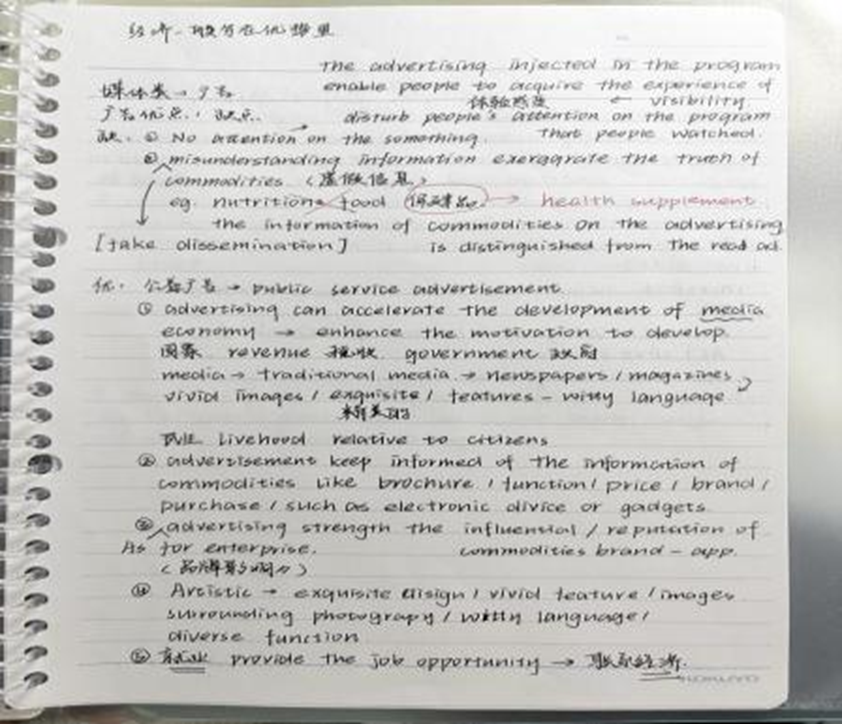 经济-
The advertising injected in the program
媒体类→广告 enable people to acquire the experience of
体验感受 ← visibility.
广告优点、缺点. disturb people's attention on the program
缺. ① No attention on the something. that people watched.
② misunderstanding information exergqrate the truth of
commodities (虚假信息)
eg. nutritions food 保健品. → health supplement
the information of commodities on the advertising
[fake dissemination] is distinguished from the read ad.
优. 公益广告 → public service advertisement.
① advertising can accelerate the development of media
economy → enhance the motivation to develop.
国家 revenue 税收 government 政府
media → traditional media → newspapers / magazines
vivid images / exquisite / features - witty language
精美的
民生 Livehood relative to citizens
② advertisement keep informed of the information of
commodities like brochure / function / price / brand /
purchase / such as electronic divice or gadgets.
③ advertising strength the influential / reputation of
As for enterprise. commodities brand - app.
(品牌影响力)
④ Artistic → exquisite disign / vivid feature / images
surrounding photograpy / witty language /
diverse function
⑤ 就业 provide the job opportunity → 联系经济.